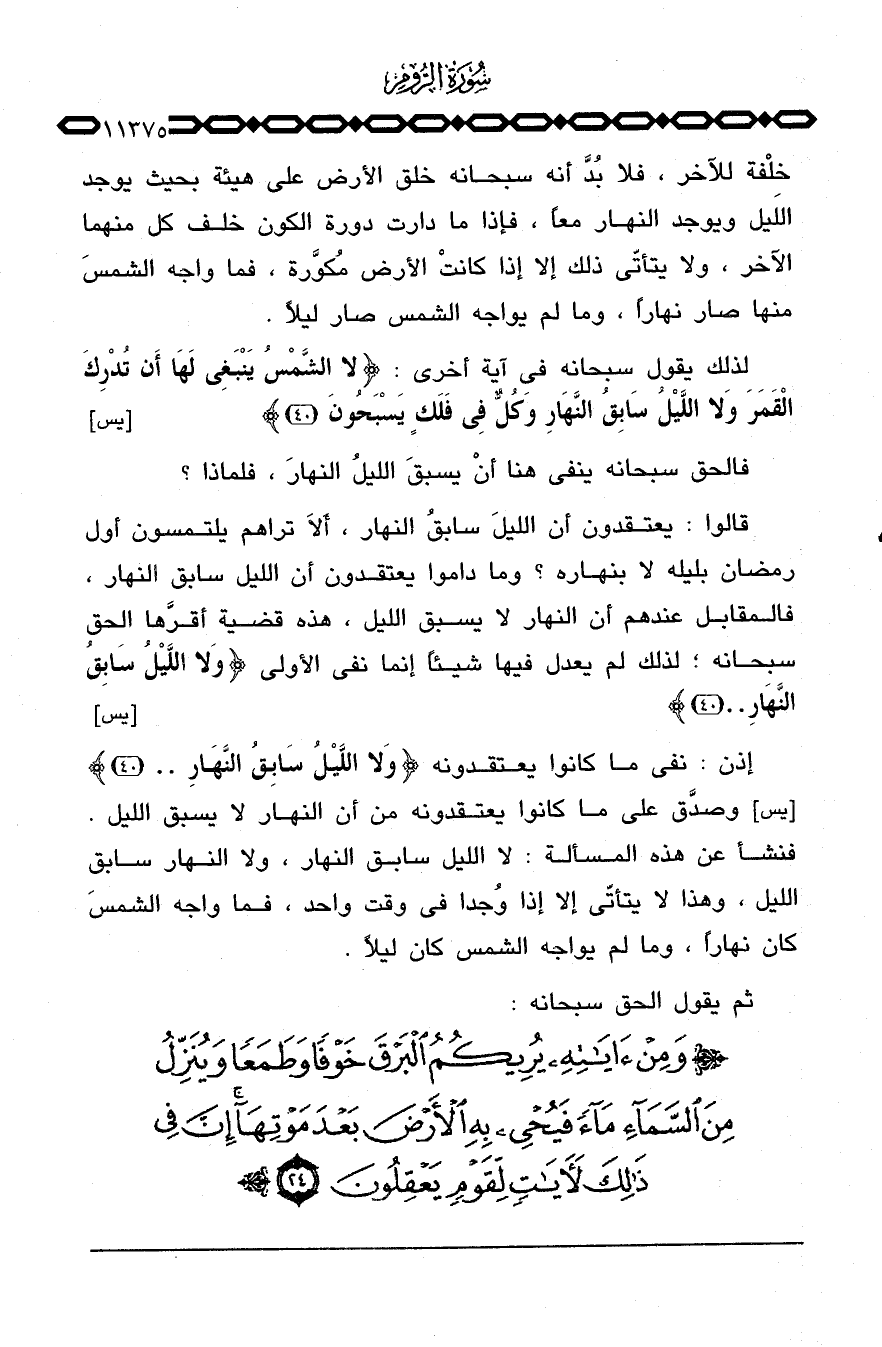 سُورَةُ الرُّومِ
١١٣٧٥
خلْفة للآخر ، فلا بُدَّ أنه سبحانه خلق الأرض على هيئة بحيث يوجد
الليل ويوجد النهار معاً ، فإذا ما دارت دورة الكون خلف كل منهما
الآخر ، ولا يتأتّى ذلك إلا إذا كانتْ الأرض مُكوَّرة ، فما واجه الشمسَ
منها صار نهاراً ، وما لم يواجه الشمس صار ليلاً .
لذلك يقول سبحانه فى آية أخرى : ﴿ لا الشَّمْسُ يَنْبَغِى لَهَا أَن تُدْرِكَ
الْقَمَرَ وَلا اللَّيْلُ سَابِقُ النَّهَارِ وَكُلٌّ فِى فَلَكٍ يَسْبَحُونَ (٤٠) ﴾ [يس]
فالحق سبحانه ينفى هنا أنْ يسبقَ الليلُ النهارَ ، فلماذا ؟
قالوا : يعتقدون أن الليلَ سابقُ النهار ، ألاَ تراهم يلتمسون أول
رمضان بليله لا بنهاره ؟ وما داموا يعتقدون أن الليل سابق النهار ،
فالمقابل عندهم أن النهار لا يسبق الليل ، هذه قضية أقرَّها الحق
سبحانه ؛ لذلك لم يعدل فيها شيئاً إنما نفى الأولى ﴿ وَلا اللَّيْلُ سَابِقُ
النَّهَارِ .. (٤٠) ﴾ [يس]
إذن : نفى ما كانوا يعتقدونه ﴿ وَلا اللَّيْلُ سَابِقُ النَّهَارِ .. (٤٠) ﴾
[يس] وصدَّق على ما كانوا يعتقدونه من أن النهار لا يسبق الليل .
فنشأ عن هذه المسألة : لا الليل سابق النهار ، ولا النهار سابق
الليل ، وهذا لا يتأتّى إلا إذا وُجدا فى وقت واحد ، فما واجه الشمسَ
كان نهاراً ، وما لم يواجه الشمس كان ليلاً .
ثم يقول الحق سبحانه :
﴿ وَمِنْ ءَايَٰتِهِۦ يُرِيكُمُ ٱلْبَرْقَ خَوْفًا وَطَمَعًا وَيُنَزِّلُ
مِنَ ٱلسَّمَآءِ مَآءً فَيُحْىِۦ بِهِ ٱلْأَرْضَ بَعْدَ مَوْتِهَآ ۚ إِنَّ فِى
ذَٰلِكَ لَـَٔايَٰتٍ لِّقَوْمٍ يَعْقِلُونَ ٢٤ ﴾